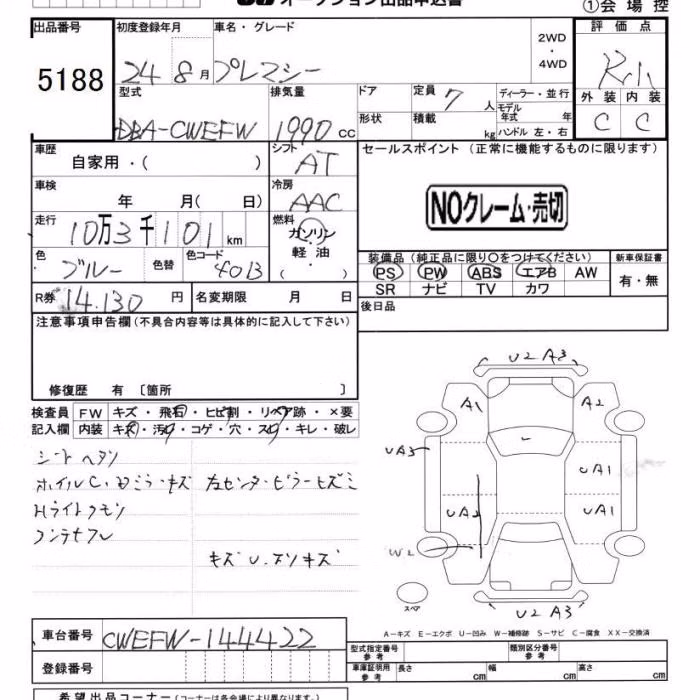 オークション出品申込書 ①会場控
出品番号 初度登録年月 車名・グレード 2WD・4WD 評価点
5188 24 8月 プレマシー
外装 内装
C C
型式 排気量 ドア 定員 7人 ディーラー・並行
DBA-CWEFW 1990 cc 形状 積載 kg モデル年式 年 ハンドル 左・右
車歴 自家用・( ) シフト AT セールスポイント (正常に機能するものに限ります)
車検 年 月( 日) 冷房 AAC
NOクレーム・売切
走行 10万3千101km 燃料 ガソリン・軽油・( )
色 ブルー 色替 色コード 40B
装備品 (純正品に限り○をつけてください) 新車保証書
PS PW ABS エアB AW 有・無
SR ナビ TV カワ
R券 14,130 円 名変期限 月 日 後日品
注意事項申告欄 (不具合内容等は具体的に記入して下さい)
修復歴 有 [箇所 ]
検査員記入欄 FW キズ・飛石・ヒビ割・リペア跡・×要
内装 キズ・汚れ・コゲ・穴・スレ・キレ・破レ
シートヘタリ
ホイルC.ドミラーキズ 左センターピラーヒズミ
Hライトクモリ
コンテナフレ
キズU.スリキズ
U2 A3
A1 A2
UA3 UA1
UA2 UA1
W2
スペア
U2 A3
A-キズ E-エクボ U-凹み W-補修跡 S-サビ C-腐食 XX-交換済
車台番号 CWEFW-144422 型式指定番号 参考 類別区分番号 参考
登録番号 車庫証明用 参考 長さ cm 幅 cm 高さ cm
希望出品コーナー (コーナーは各会場により異なります。)